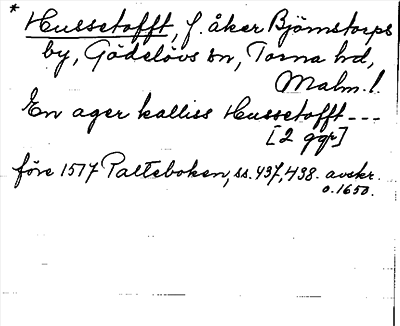 * Hussetofft, f. åker Björnstorps
by, Gödelövs sn, Torna hd,
Malm. l.
En ager kalliss Hussetofft ---
[2 ggr]
före 1517 Palteboken, ss. 437, 438. avskr.
o. 1650.